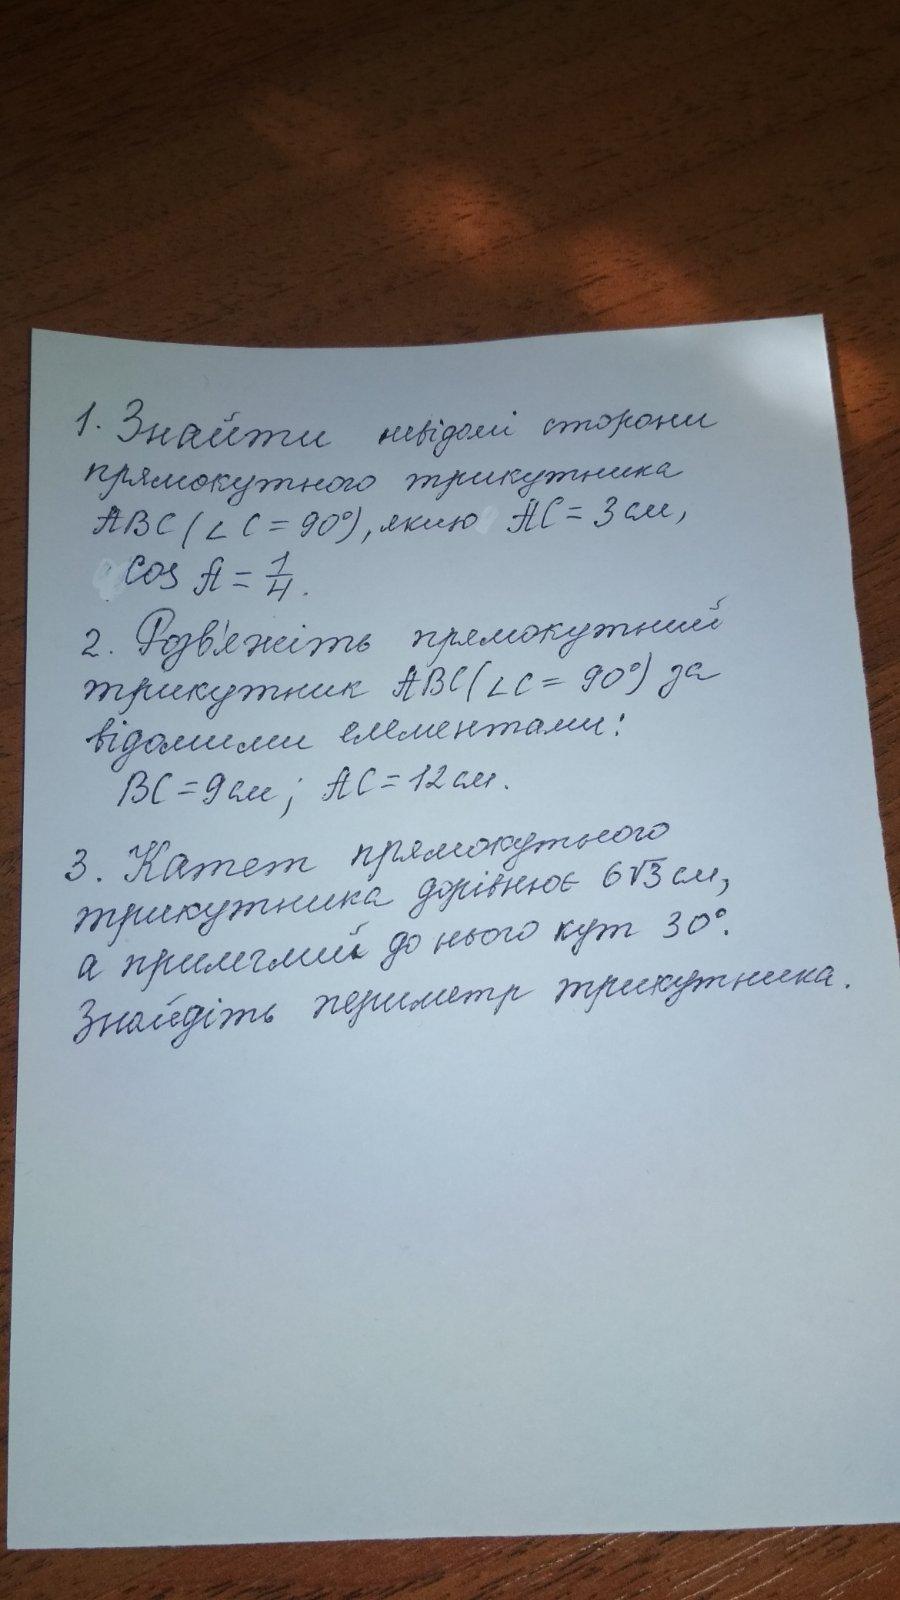 1. Знайти невідомі сторони
прямокутного трикутника
ABC (∠C = 90°), якщо AC = 3 см,
cos A = 1/4.
2. Розв'яжіть прямокутний
трикутник ABC (∠C = 90°) за
відомими елементами:
BC = 9 см; AC = 12 см.
3. Катет прямокутного
трикутника дорівнює 6√3 см,
а прилеглий до нього кут 30°.
Знайдіть периметр трикутника.